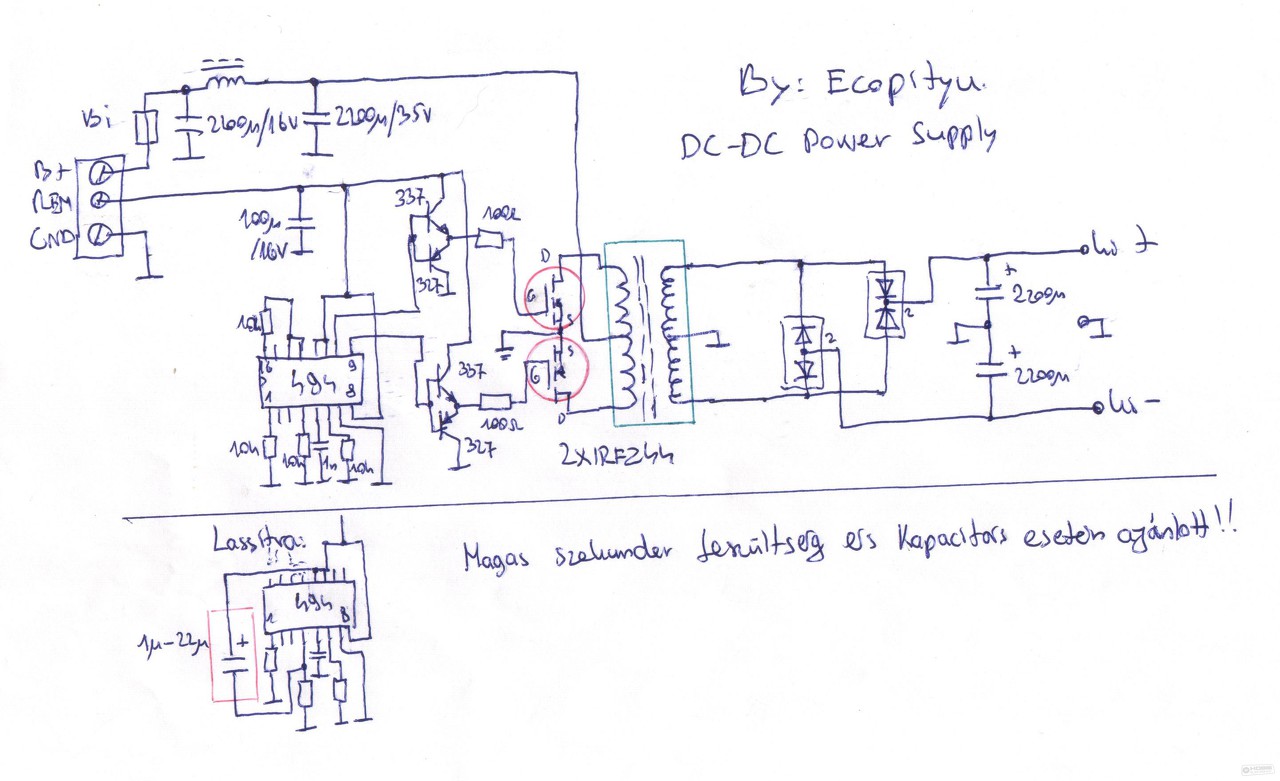 By: Ecopityu.
DC-DC Power Supply
Bi
2200µ/16V
2200µ/35V
B+
REM
GND
100µ
/16V
337
100Ω
327
D
G
S
S
G
D
10k
16
9
494
1
8
337
100Ω
327
10k
10k
1n
10k
2XIRFZ44
2
2
+
2200µ
+
2200µ
+
-
Lassítva:
494
1
8
1µ-22µ
+
Magas szekunder feszültség és Kapacitás esetén ajánlott!!